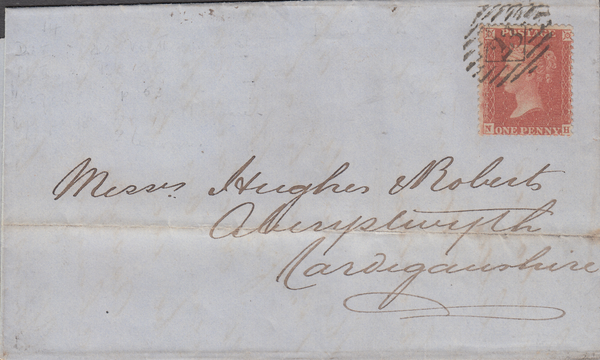 POSTAGE
N H
ONE PENNY
Messrs Hughes & Roberts
Aberystwyth
Cardiganshire